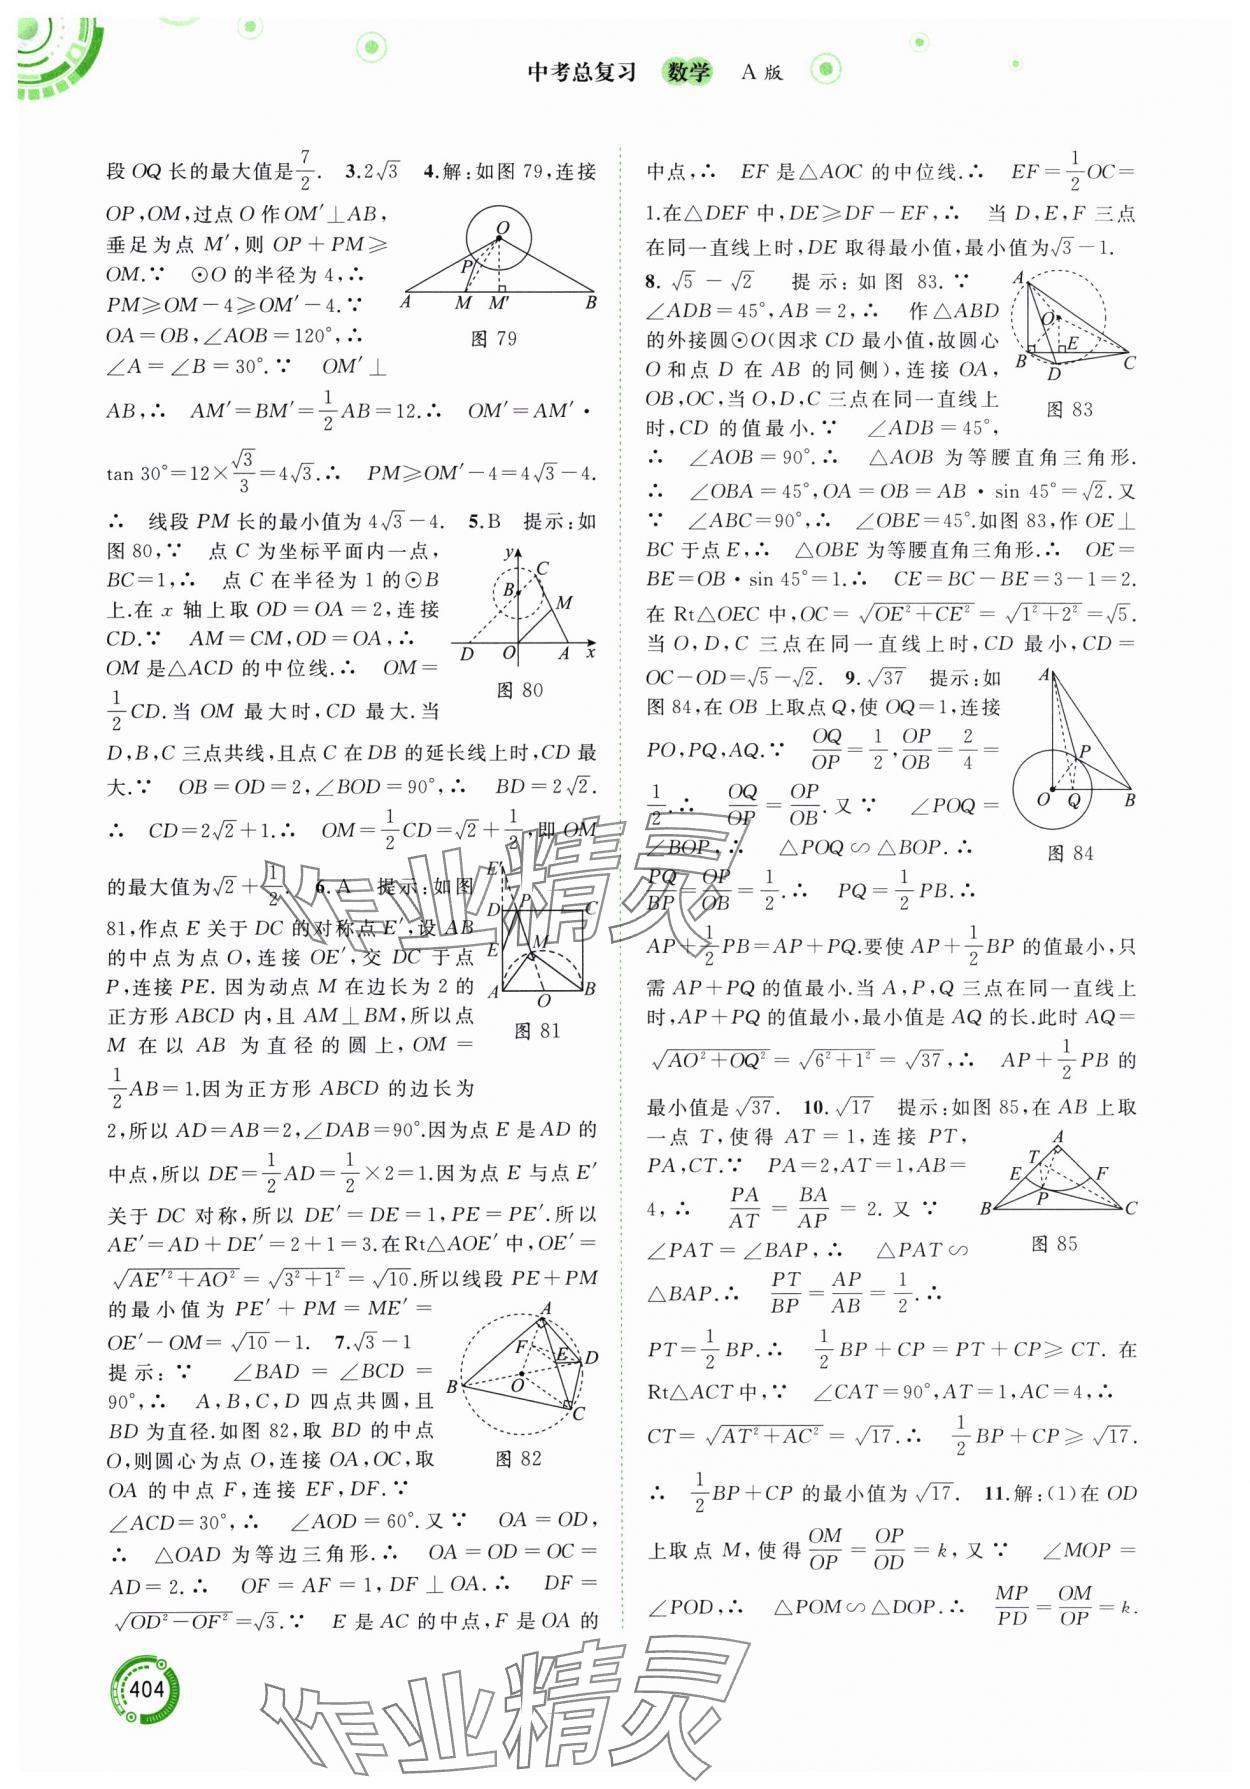 中考总复习 数学 A 版
段 OQ 长的最大值是7/2. 3.2√3 4.解:如图 79,连接
OP,OM,过点 O 作OM′⊥AB,
垂足为点 M′,则 OP+PM≥
OM.∵ ⊙O 的半径为 4,∴
PM≥OM-4≥OM′-4.∵
OA=OB,∠AOB=120°,∴
∠A=∠B=30°.∵ OM′⊥
O
P
A M M′ B
图 79
AB,∴ AM′=BM′=1/2AB=12.∴ OM′=AM′·
tan 30°=12×√3/3=4√3.∴ PM≥OM′-4=4√3-4.
∴ 线段 PM 长的最小值为 4√3-4. 5.B 提示:如
图 80,∵ 点 C 为坐标平面内一点,
BC=1,∴ 点 C 在半径为 1 的⊙B
上.在 x 轴上取 OD=OA=2,连接
CD.∵ AM=CM,OD=OA,∴
OM 是△ACD 的中位线.∴ OM=
1/2CD.当 OM 最大时,CD 最大.当
y
C
B
M
D O A x
图 80
D,B,C 三点共线,且点 C 在 DB 的延长线上时,CD 最
大.∵ OB=OD=2,∠BOD=90°,∴ BD=2√2.
∴ CD=2√2+1.∴ OM=1/2CD=√2+1/2,即 OM
的最大值为√2+1/2. 6.A 提示:如图
81,作点 E 关于 DC 的对称点 E′,设 AB
的中点为点 O,连接 OE′,交 DC 于点
P,连接 PE. 因为动点 M 在边长为 2 的
正方形 ABCD 内,且 AM⊥BM,所以点
M 在以 AB 为直径的圆上,OM=
1/2AB=1.因为正方形 ABCD 的边长为
E′
D P C
E M
A O B
图 81
2,所以 AD=AB=2,∠DAB=90°.因为点 E 是 AD 的
中点,所以 DE=1/2AD=1/2×2=1.因为点 E 与点 E′
关于 DC 对称,所以 DE′=DE=1,PE=PE′.所以
AE′=AD+DE′=2+1=3.在Rt△AOE′中,OE′=
√(AE′²+AO²)=√(3²+1²)=√10.所以线段 PE+PM
的最小值为 PE′+PM=ME′=
OE′-OM=√10-1. 7.√3-1
提示:∵ ∠BAD=∠BCD=
90°,∴ A,B,C,D 四点共圆,且
BD 为直径.如图 82,取 BD 的中点
O,则圆心为点 O,连接 OA,OC,取
OA 的中点 F,连接 EF,DF.∵
A
F
E D
B O
C
图 82
∠ACD=30°,∴ ∠AOD=60°.又∵ OA=OD,
∴ △OAD 为等边三角形.∴ OA=OD=OC=
AD=2.∴ OF=AF=1,DF⊥OA.∴ DF=
√(OD²-OF²)=√3.∵ E 是 AC 的中点,F 是 OA 的
中点,∴ EF 是△AOC 的中位线.∴ EF=1/2OC=
1.在△DEF 中,DE≥DF-EF,∴ 当 D,E,F 三点
在同一直线上时,DE 取得最小值,最小值为√3-1.
8.√5-√2 提示:如图 83.∵
∠ADB=45°,AB=2,∴ 作△ABD
的外接圆⊙O(因求 CD 最小值,故圆心
O 和点 D 在 AB 的同侧),连接 OA,
OB,OC,当 O,D,C 三点在同一直线上
时,CD 的值最小.∵ ∠ADB=45°,
A
O
B E C
D
图 83
∴ ∠AOB=90°.∴ △AOB 为等腰直角三角形.
∴ ∠OBA=45°,OA=OB=AB·sin 45°=√2.又
∵ ∠ABC=90°,∴ ∠OBE=45°.如图 83,作 OE⊥
BC 于点 E,∴ △OBE 为等腰直角三角形.∴ OE=
BE=OB·sin 45°=1.∴ CE=BC-BE=3-1=2.
在 Rt△OEC 中,OC=√(OE²+CE²)=√(1²+2²)=√5.
当 O,D,C 三点在同一直线上时,CD 最小,CD=
OC-OD=√5-√2. 9.√37 提示:如
图 84,在 OB 上取点 Q,使 OQ=1,连接
PO,PQ,AQ.∵ OQ/OP=1/2,OP/OB=2/4=
1/2,∴ OQ/OP=OP/OB.又∵ ∠POQ=
∠BOP,∴ △POQ∽△BOP.∴
A
P
O Q B
图 84
PQ/BP=OP/OB=1/2.∴ PQ=1/2PB.∴
AP+1/2PB=AP+PQ.要使 AP+1/2BP 的值最小,只
需 AP+PQ 的值最小.当 A,P,Q 三点在同一直线上
时,AP+PQ 的值最小,最小值是 AQ 的长.此时 AQ=
√(AO²+OQ²)=√(6²+1²)=√37,∴ AP+1/2PB 的
最小值是√37. 10.√17 提示:如图 85,在 AB 上取
一点 T,使得 AT=1,连接 PT,
PA,CT.∵ PA=2,AT=1,AB=
4,∴ PA/AT=BA/AP=2.又∵
∠PAT=∠BAP,∴ △PAT∽
△BAP.∴ PT/BP=AP/AB=1/2.∴
A
T
E F
P
B C
图 85
PT=1/2BP.∴ 1/2BP+CP=PT+CP≥CT. 在
Rt△ACT 中,∵ ∠CAT=90°,AT=1,AC=4,∴
CT=√(AT²+AC²)=√17.∴ 1/2BP+CP≥√17.
∴ 1/2BP+CP 的最小值为√17. 11.解:(1)在 OD
上取点 M,使得OM/OP=OP/OD=k,又∵ ∠MOP=
∠POD,∴ △POM∽△DOP.∴ MP/PD=OM/OP=k.
404
作业精灵
作业精灵